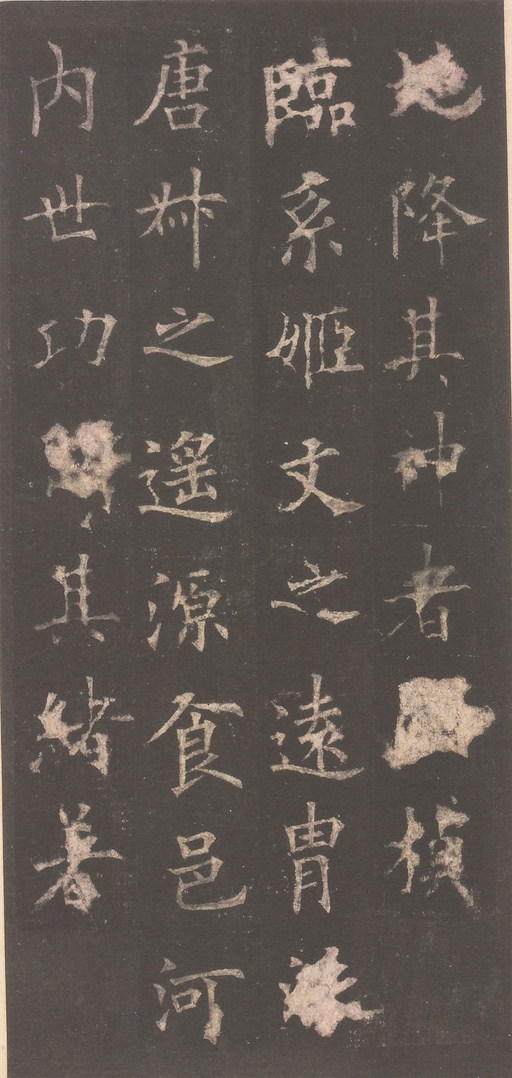 降其神者楨
臨系姬文之遠冑
唐叔之遙源食邑河
內世功其緒著